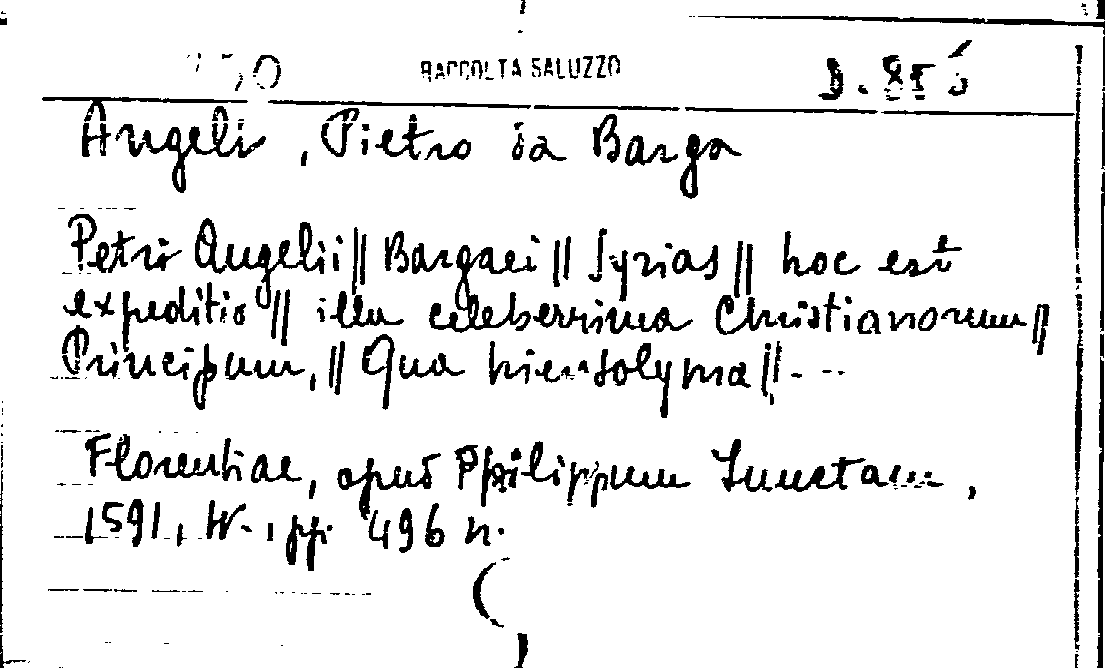 RACCOLTA SALUZZO
Angeli, Pietro da Barga
Petri Angelii || Bargaei || Syrias || hoc est
expeditio || illa celeberrima Christianorum ||
Principum, || Qua hierosolyma || ---
Florentiae, apud Philippum Iunctam,
1591, pp. 496 n.